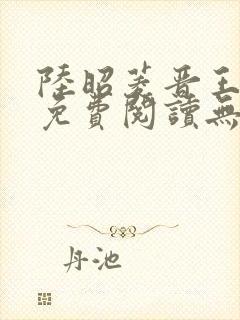 陸昭菱晋王
免費閱讀無
丹池